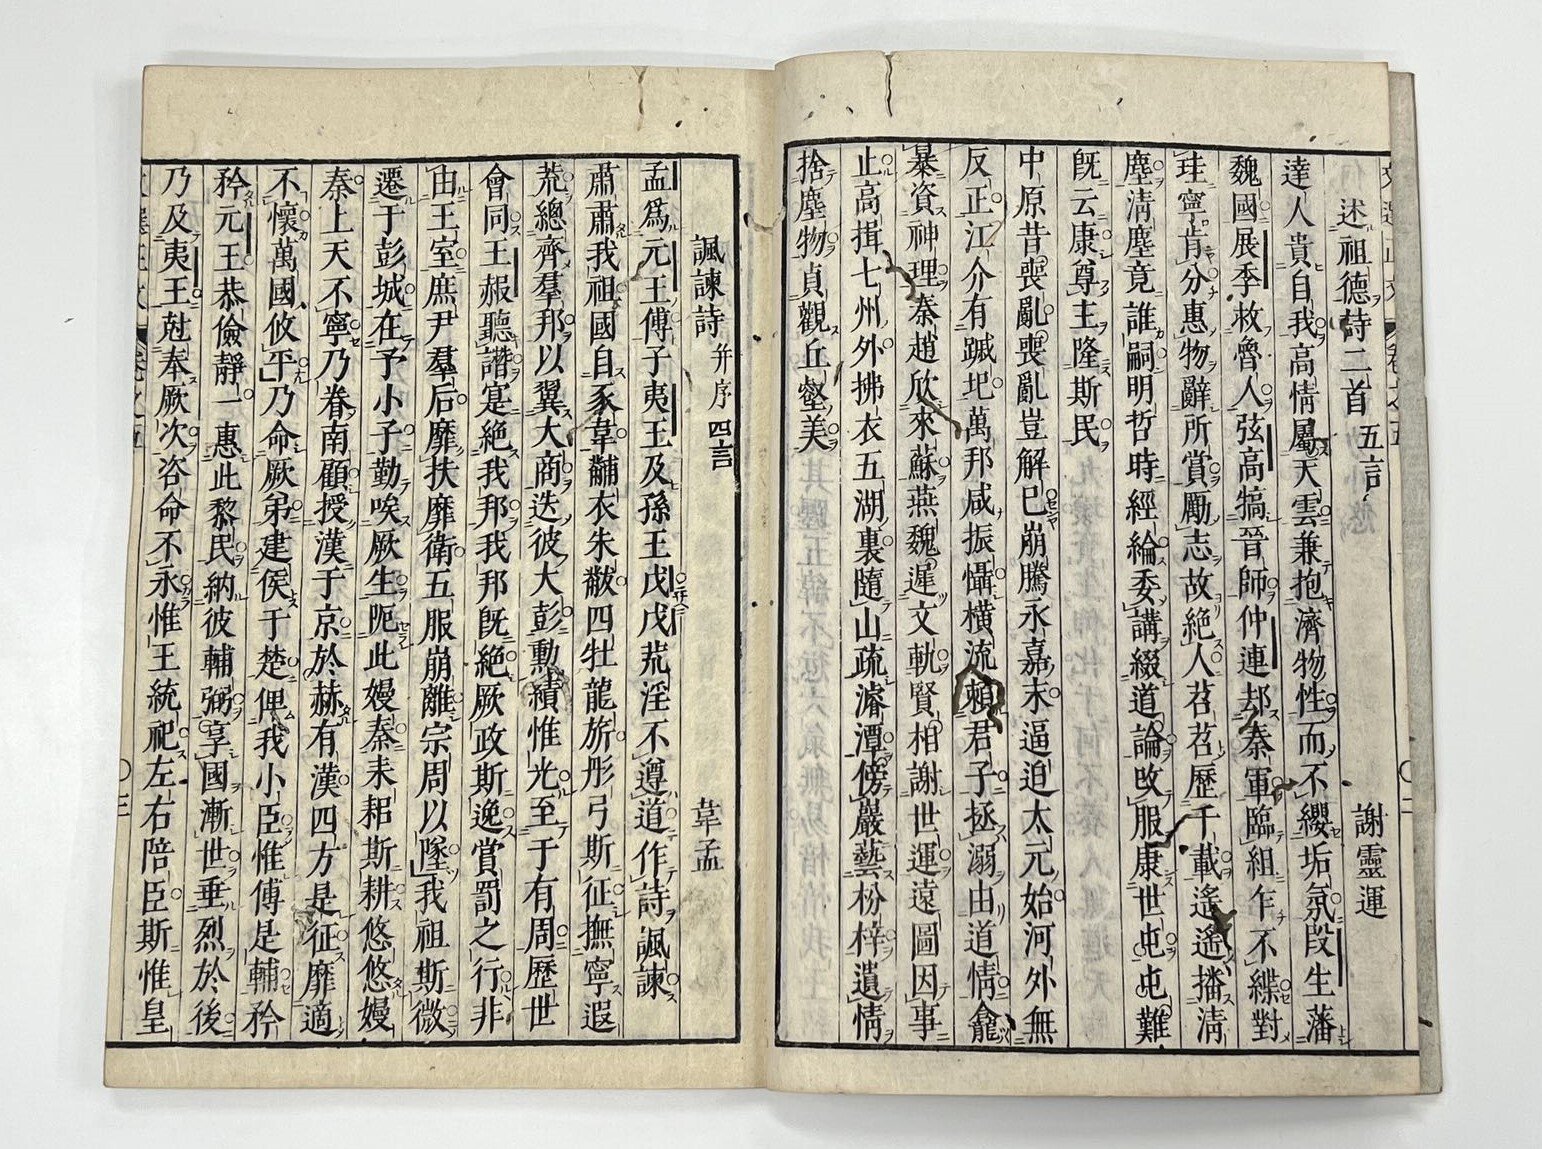 述祖德詩二首 五言 謝靈運
達人貴自我高情屬天雲兼抱濟物性而不纓垢氛段生藩
魏國展季救魯人弦高犒晉師仲連却秦軍臨組乍不緤對
珪寧肯分惠物辭所賞勵志故絕人苕苕歷千載遙遙播清
塵清塵竟誰嗣明哲時經綸委講綴道論改服康世屯屯難
既云康尊主隆斯民
中原昔喪亂喪亂豈解已崩騰永嘉末逼迫太元始河外無
反正江介有蹴圯萬邦咸振懾橫流賴君子拯溺由道情龕
暴資神理秦趙欣來蘇燕魏遲文軌賢相謝世運遠圖因事
止高揖七州外拂衣五湖裏隨山疏濬潭傍巖藝枌梓遺情
捨塵物貞觀丘壑美
諷諫詩 并序 四言 韋孟
孟爲元王傅子夷王及孫王戊戊荒淫不遵道作詩諷諫
肅肅我祖國自豕韋黼衣朱黻四牡龍旂彤弓斯征撫寧遐
荒總齊羣邦以翼大商迭彼大彭勳績惟光至于有周歷世
會同王赧聽譖寔絕我邦我邦既絕厥政斯逸賞罰之行非
由王室庶尹羣后靡扶靡衛五服崩離宗周以墜我祖斯微
遷于彭城在予小子勤唉厥生阨此嫚秦耒耜斯耕悠悠嫚
秦上天不寧乃眷南顧授漢于京於赫有漢四方是征靡適
不懷萬國攸平乃命厥弟建侯于楚俾我小臣惟傅是輔矜
矜元王恭儉靜一惠此黎民納彼輔弼享國漸世垂烈於後
乃及夷王尅奉厥次咨命不永惟王統祀左右陪臣斯惟皇